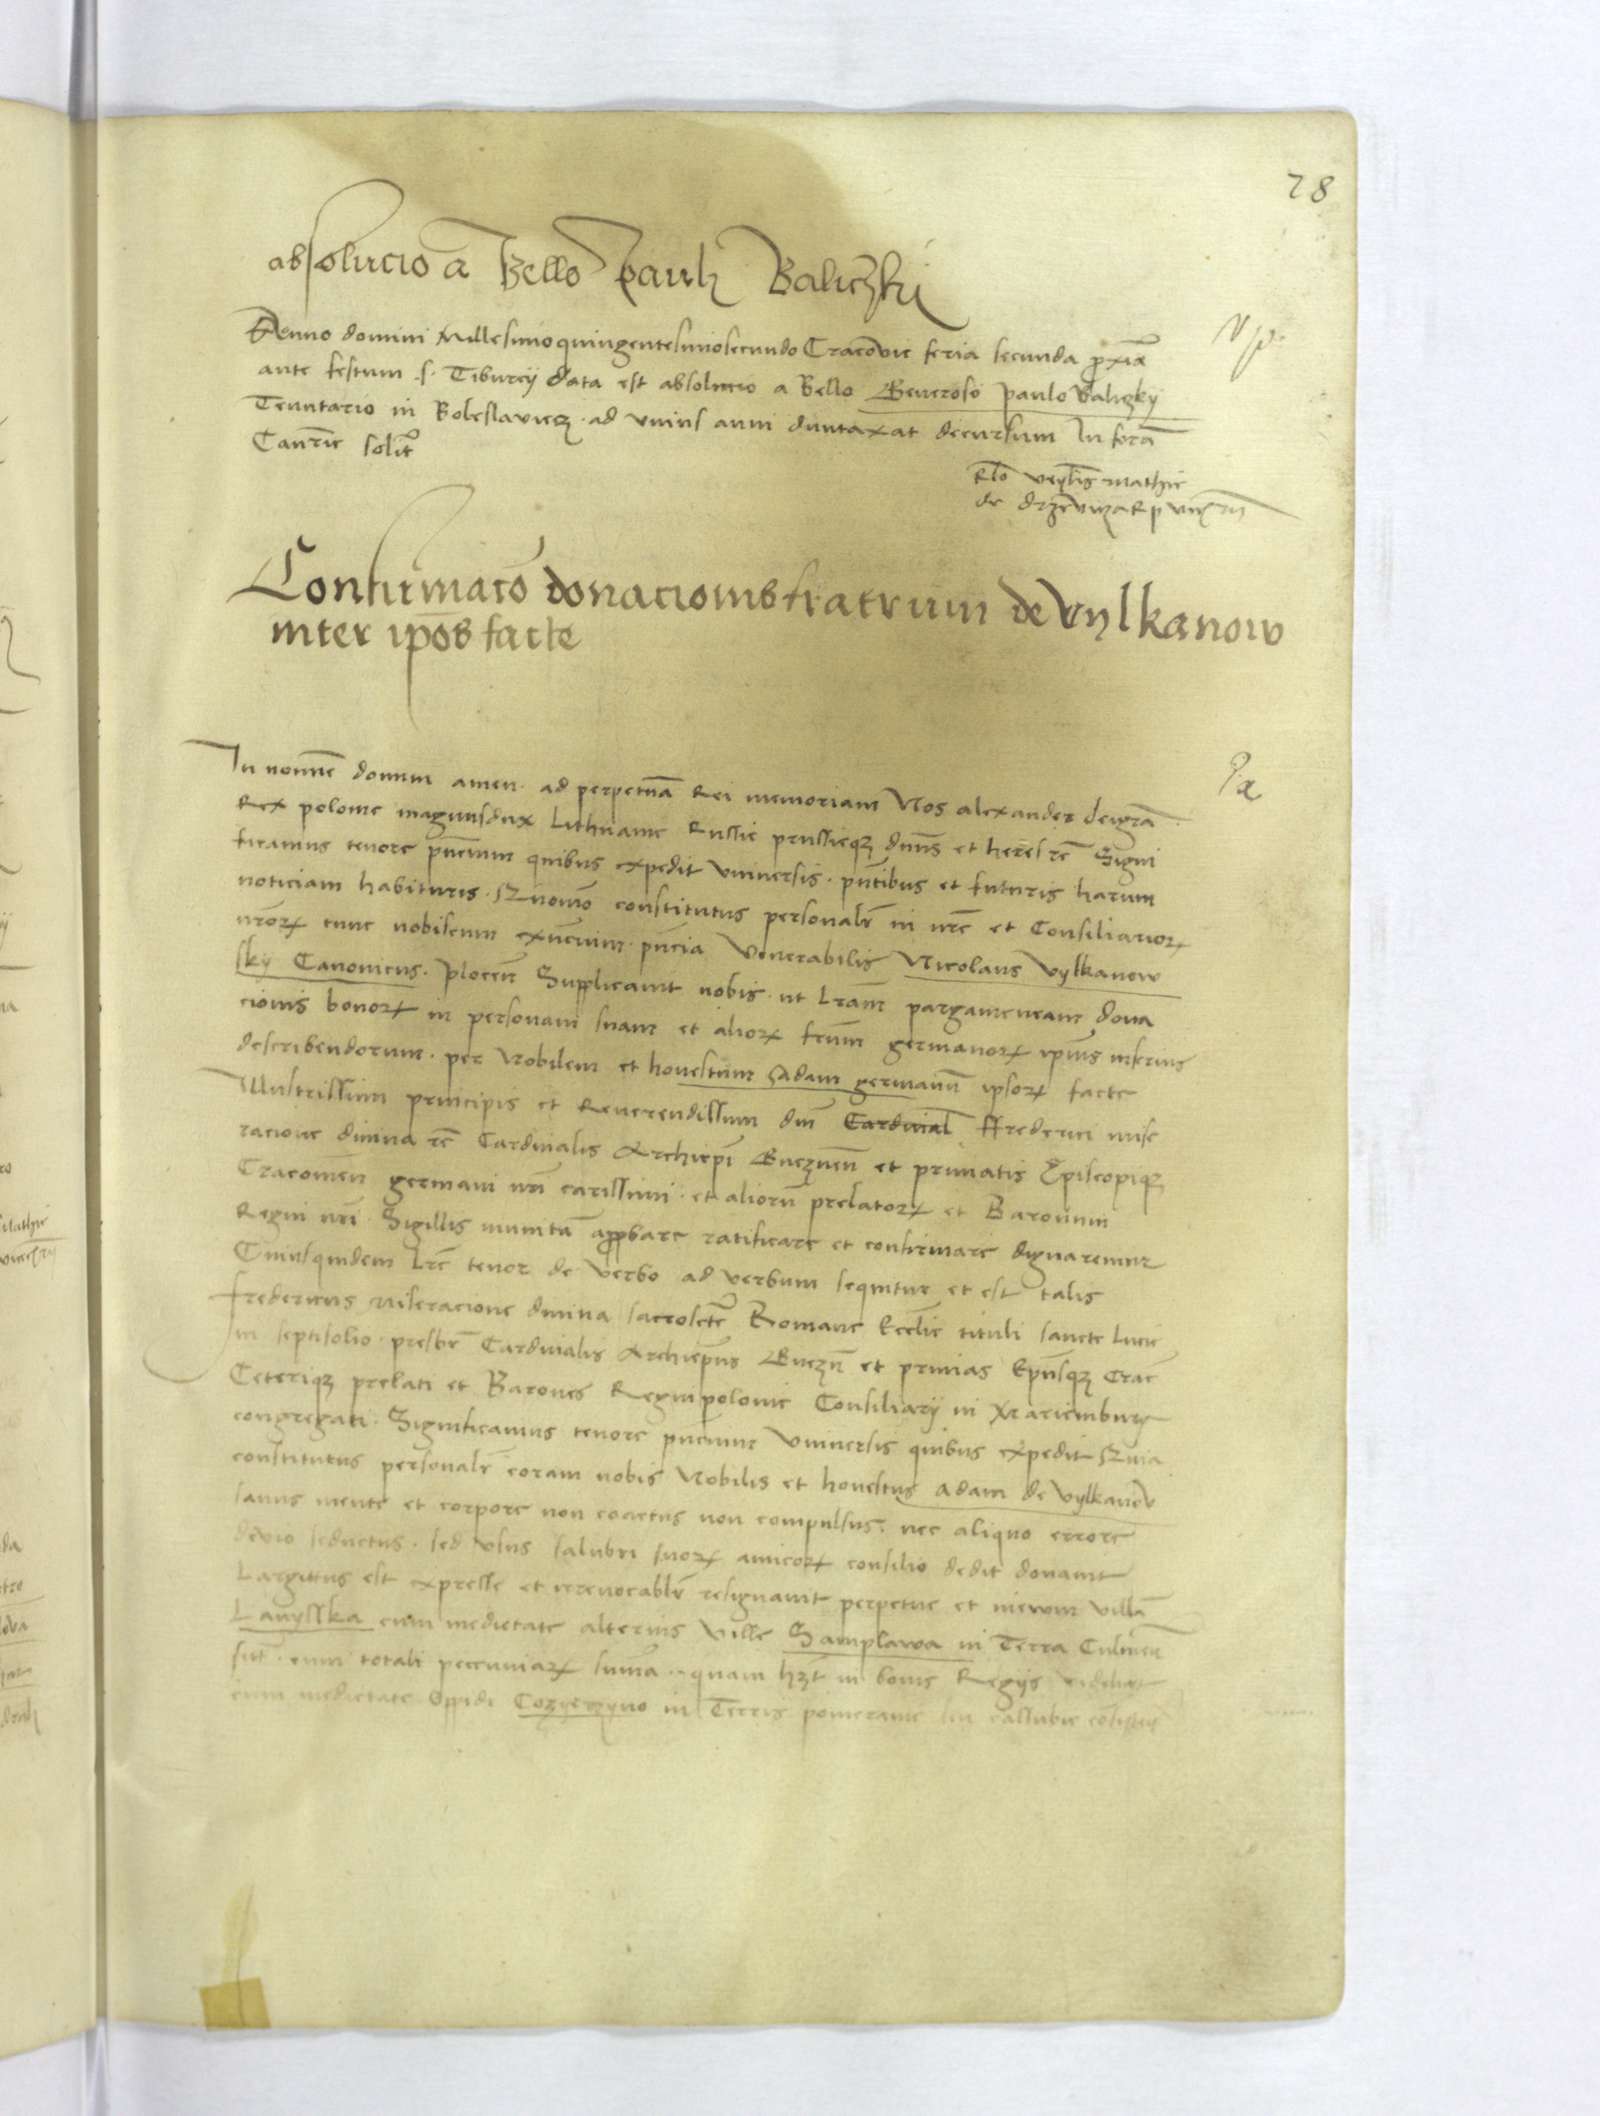 28
absolucio a Bello pauli Baliczkii
Anno domini Millesimo quingentesimo secundo Cracovie feria secunda proxīa
ante festum .s. Tiburcij data est absolucio a Bello Generoso paulo Baliczky
Tenutario in Boleslaviecz. ad unius anni duntaxat decursum In forā
Cancrie solit
Rlō veꝉis mathie
de drzevicza R p vicecan
Confirmacō donacionis fratrum de Vylkanow
inter ipos facte
In nomine domini amen. ad perpetuā Rei memoriam Nos alexander dei grā
Rex polonie magnus dux Lithuanie Russie prussieqꝫ dn̄us et heres rc̄ Signi
ficamus tenore pn̄cium quibus expedit universis. pn̄tibus et futuris harum
noticiam habituris. Quomō constitutus personalr̄ in nrē et Consiliarioꝝ
nroꝝ tunc nobiscum exn̄cium. pn̄cia Venerabilis Nicolaus Vylkanow
sky Canonicus. plocen̄ Supplicavit nobis. ut Lrām pargameneam dona
cionis bonoꝝ in personam suam et alioꝝ frūm germanoꝝ ipius inferius
describendorum. per Nobilem et honestum Adam germanum ipsoꝝ facte
Illustrissimi principis et Reverendissimi dn̄i Cardinal Frederici mise
racione divina rc̄ Cardinalis Archiepī Gneznen̄ et primatis Episcopiqꝫ
Cracovien̄ germani nrī carissimi. et aliorū prelatoꝝ et Baronum
Regni nrī. Sigillis munitā approbare ratificare et confirmare dignaremur
Cuiusquidem Lrē tenor de verbo ad verbum sequitur et est talis
Fredericus miseracione divina sacrosctē Romane Ecclie tituli sancte Lucie
in septisolio. presbr̄ Cardinalis Archiepus Gnezn̄ et primas Epūsqꝫ Crac̄
Ceteriqꝫ prelati et Barones Regni polonie Consiliarij in Mariemburg
congregati. Significamus tenore pn̄cium Universis quibus expedit Quia
constitutus personalr̄ coram nobis Nobilis et honestus Adam de Vylkanow
sanus mente et corpore non coactus non compulsus. nec aliquo errore
devio seductus. sed usus salubri suoꝝ amicoꝝ consilio dedit donavit
Largitus est expresse et irrevocablr̄ resignavit perpetue et inevum villā
Lanysska cum medietate alterius Ville Samplawa in Terra Culmen̄
sit. cum totali pecuniaꝝ suma. quam hꝫt in bonis Regijs videlicet
cum medietate Oppidi Cozyerzyno in Terris pomeranie seu cassubie